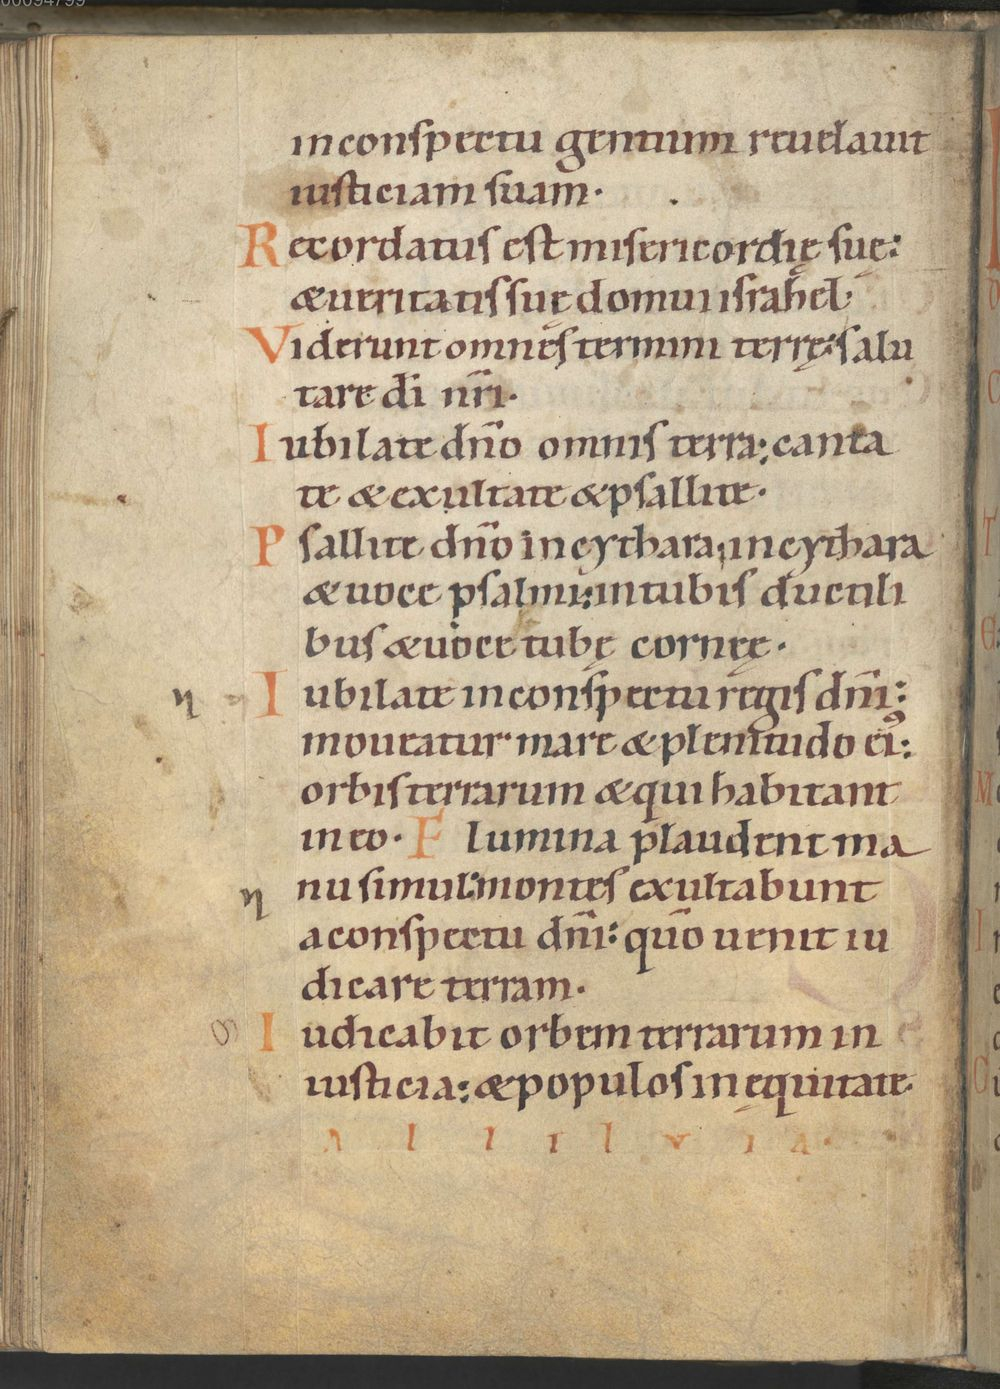 in conspectu gentium reuelauit
iusticiam suam·
Recordatus est misericordię suę:
& ueritatis suę domui israhel·
Viderunt omnes termini terrę: salu
tare dī nr̄i·
Iubilate dn̄o omnis terra: canta
te & exultate & psallite·
Psallite dn̄o in cythara, in cythara
& uoce psalmi: in tubis ductili
bus & uoce tubę cornęę·
Iubilate in conspectu regis dn̄i:
moueatur mare & plenitudo ei᾿:
orbis terrarum & qui habitant
in eo· Flumina plaudent ma
nu simul: montes exultabunt
a conspectu dn̄i: quō uenit iu
dicare terram·
Iudicabit orbem terrarum in
iusticia: & populos in equitate·
A l l e l v i a·